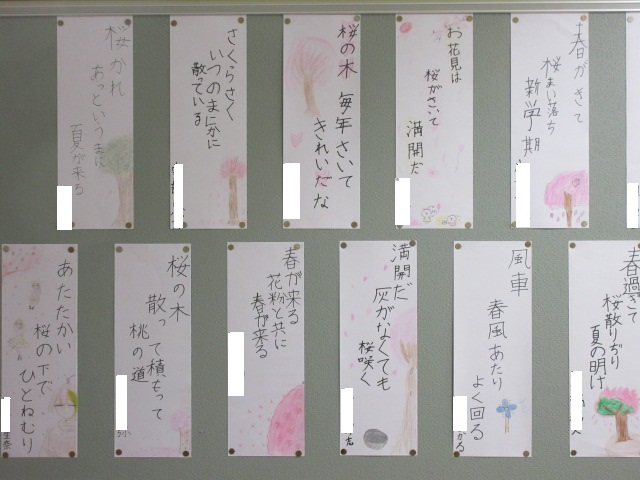 春がきて
桜まい落ち
新学期
お花見は
桜がさいて
満開だ
桜の木
毎年さいて
きれいだな
さくらさく
いつのまにかに
散っている
桜かれ
あっというまに
夏が来る
春過ぎて
桜散りぢり
夏の明け
風車
春風あたり
よく回る
満開だ
灰がなくても
桜咲く
春が来る
花粉と共に
春が来る
桜の木
散って積もって
桃の道
あたたかい
桜の下で
ひとねむり